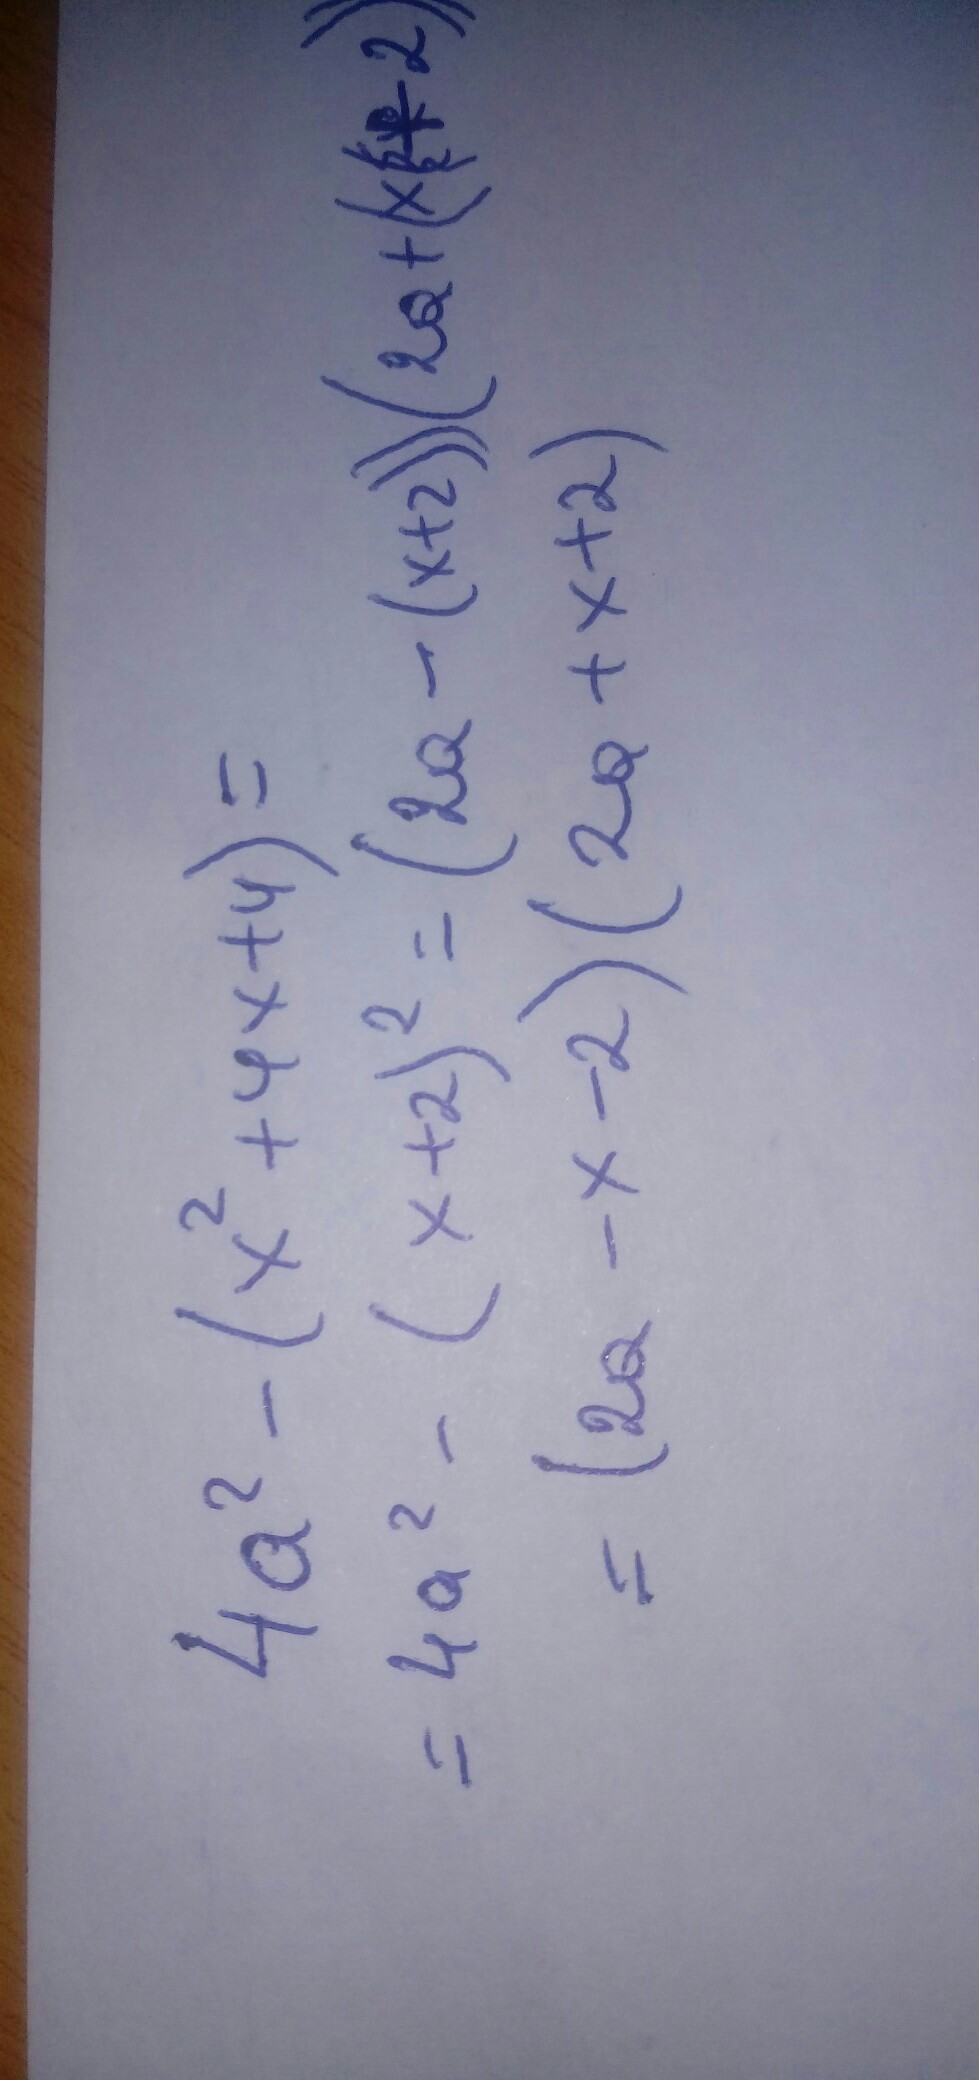 4a² - (x² + 4x + 4) =
= 4a² - (x+2)² = (2a - (x+2))(2a + (x+2))
= (2a - x - 2)(2a + x + 2)